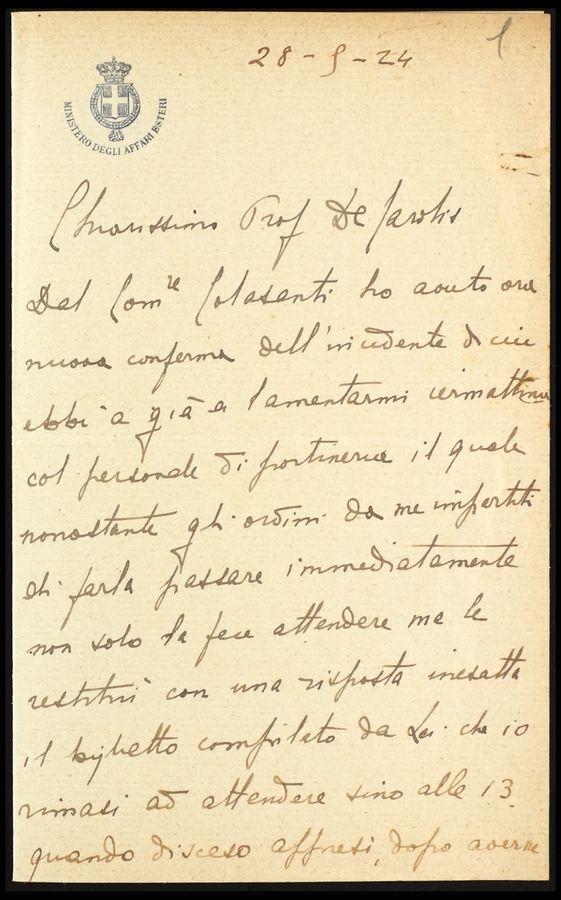 1
28-5-24
MINISTERO DEGLI AFFARI ESTERI
Chiarissimo Prof De Carolis
Dal Comre Colasanti ho avuto ora
nuova conferma dell'incidente di cui
ebbi a già a lamentarmi iermattina
col personale di portineria il quale
nonostante gli ordini da me impartiti
di farla passare immediatamente
non solo la fece attendere ma le
restituì con una risposta inesatta
il biglietto compilato da Lei che io
rimasi ad attendere sino alle 13.
quando disceso appresi, dopo averne